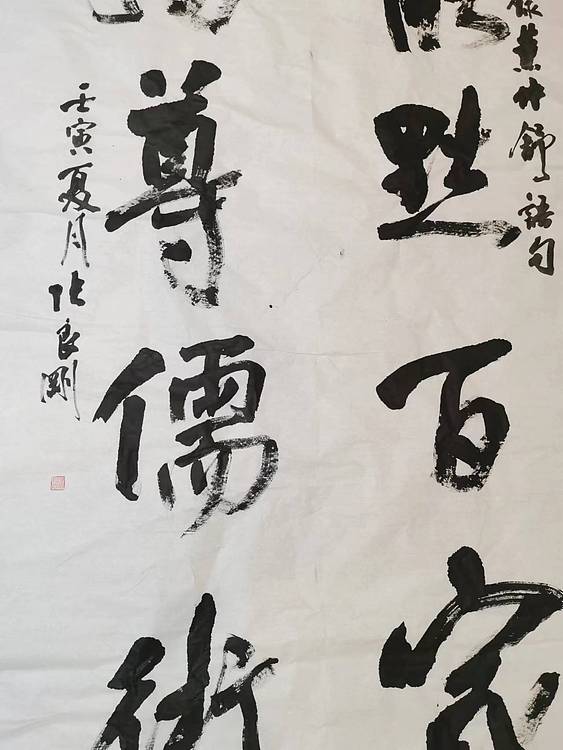 録董仲舒語句
黜百家
尊儒術
壬寅夏月张良剛